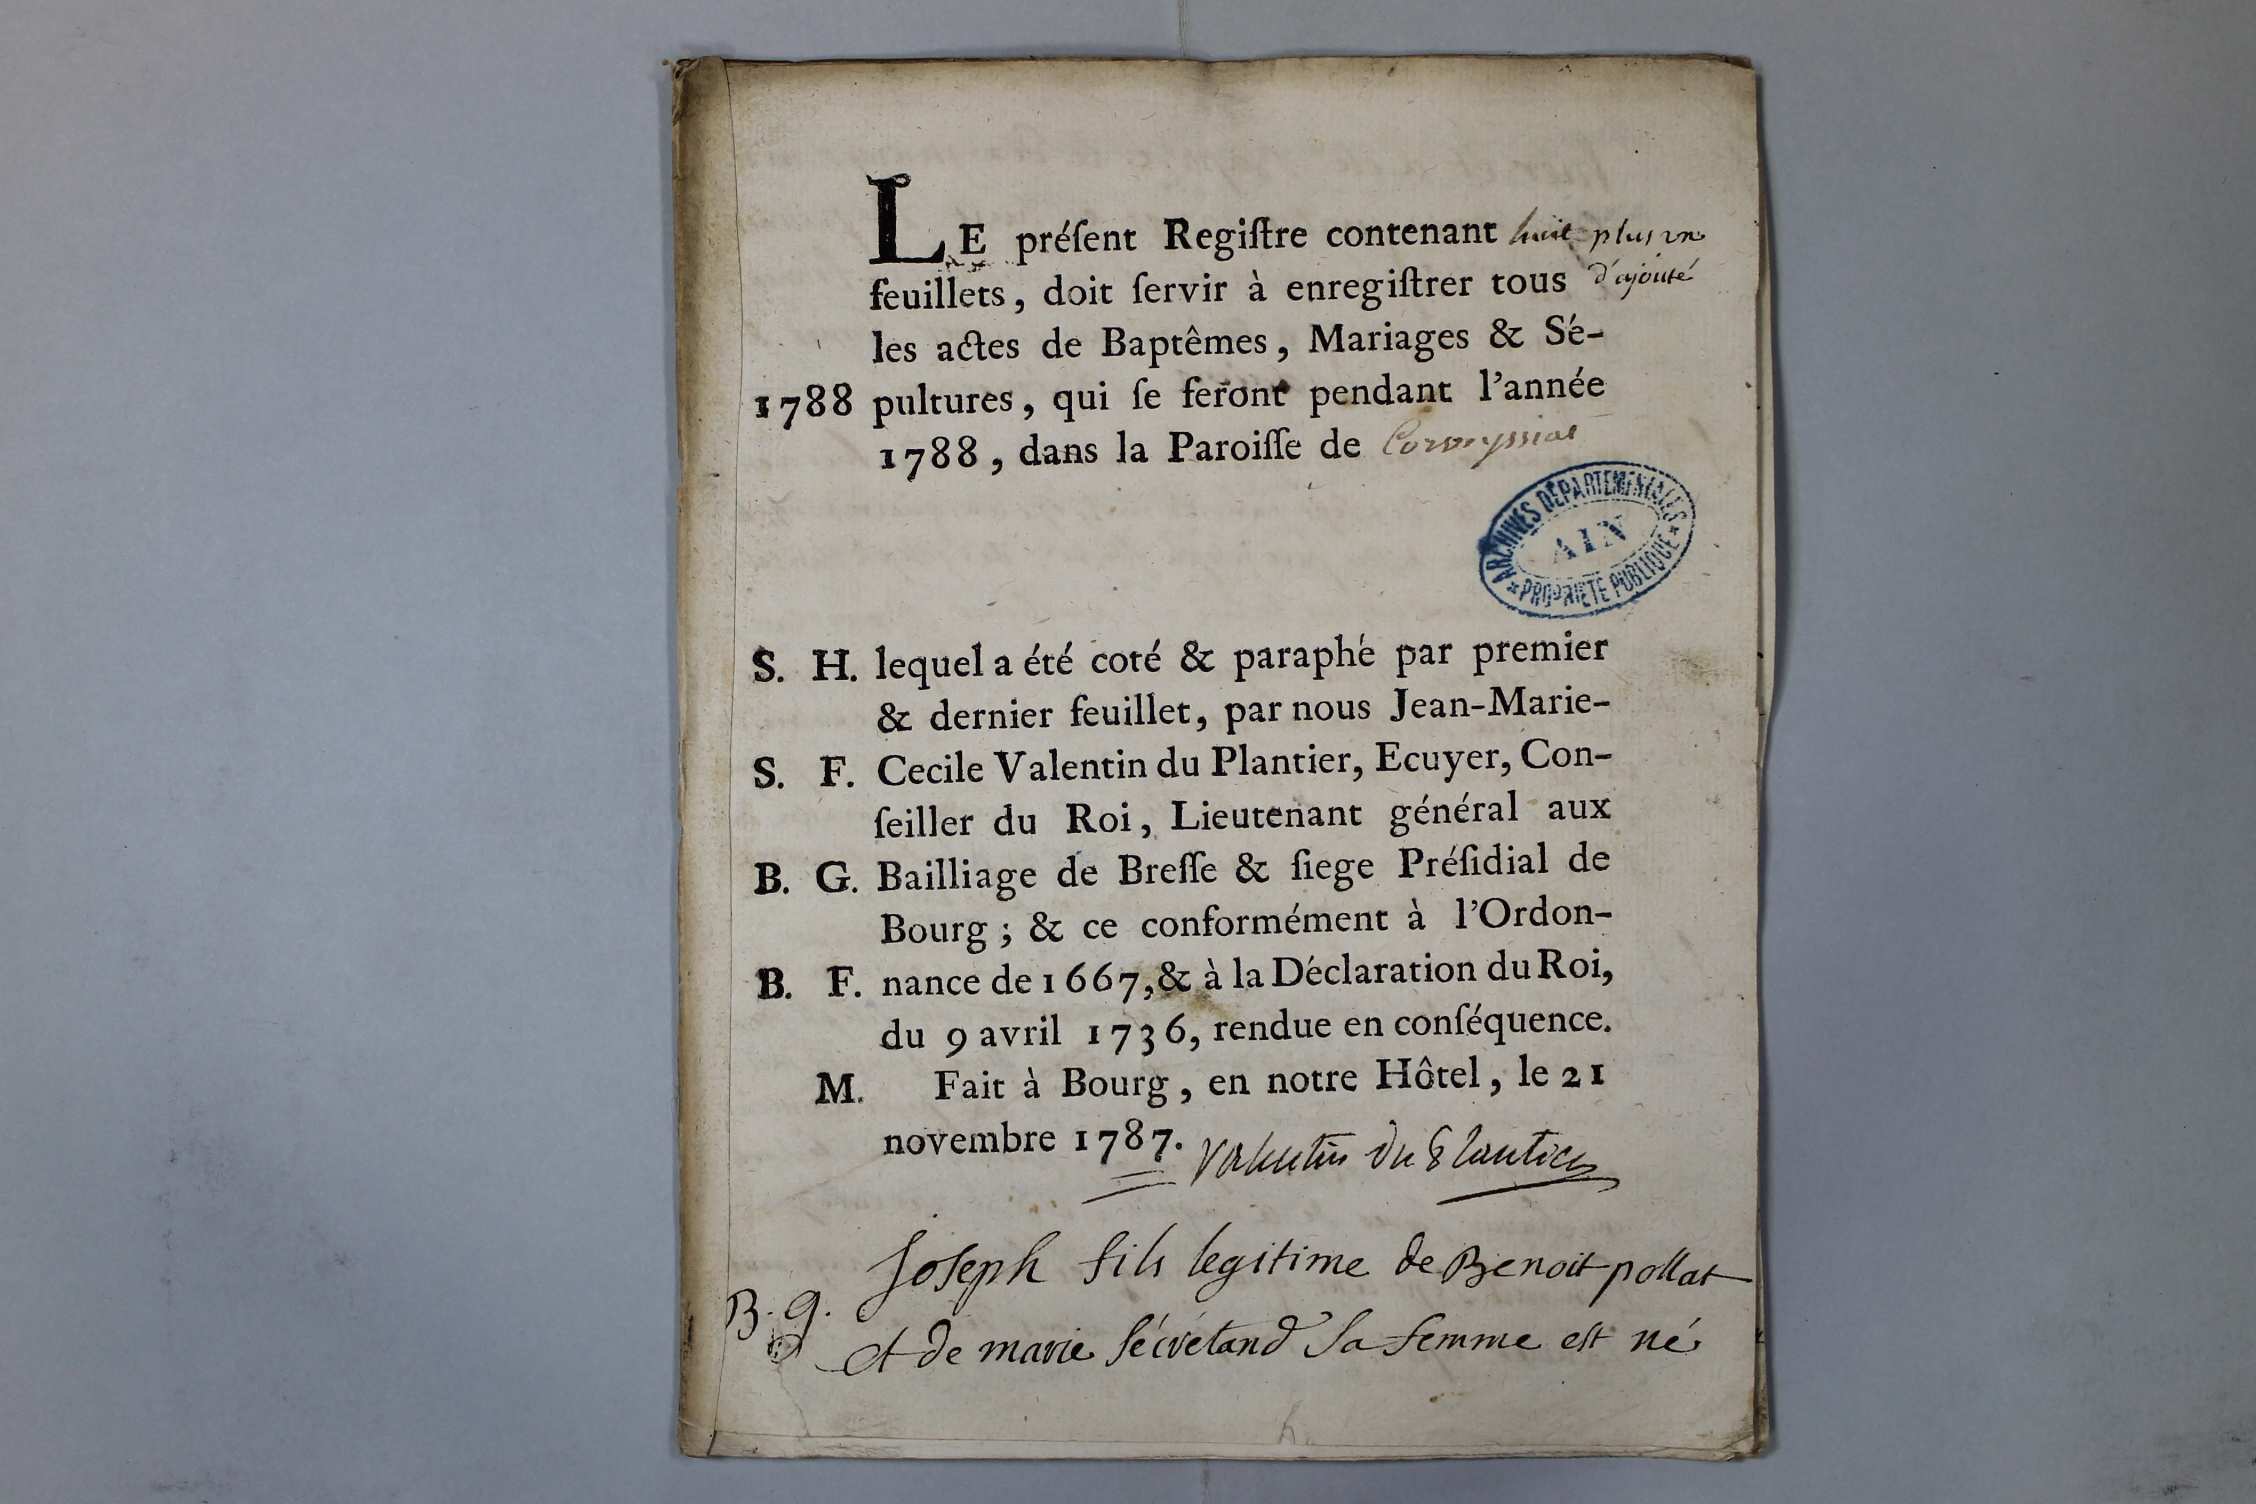 LE préſent Regiſtre contenant huit plus un
feuillets, doit ſervir à enregiſtrer tous d'ajouté
les actes de Baptêmes, Mariages & Sé-
1788 pultures, qui ſe feront pendant l'année
1788, dans la Paroiſſe de Corveyssiat
ARCHIVES DÉPARTEMENTALES
AIN
PROPRIÉTÉ PUBLIQUE
S. H. lequel a été coté & paraphé par premier
& dernier feuillet, par nous Jean-Marie-
S. F. Cecile Valentin du Plantier, Ecuyer, Con-
ſeiller du Roi, Lieutenant général aux
B. G. Bailliage de Breſſe & ſiege Préſidial de
Bourg; & ce conformément à l'Ordon-
B. F. nance de 1667, & à la Déclaration du Roi,
du 9 avril 1736, rendue en conſéquence.
M. Fait à Bourg, en notre Hôtel, le 21
novembre 1787. Valentin du Plantier
Joseph fils legitime de Benoit pollat
B. g. et de marie sécrétand sa femme est né